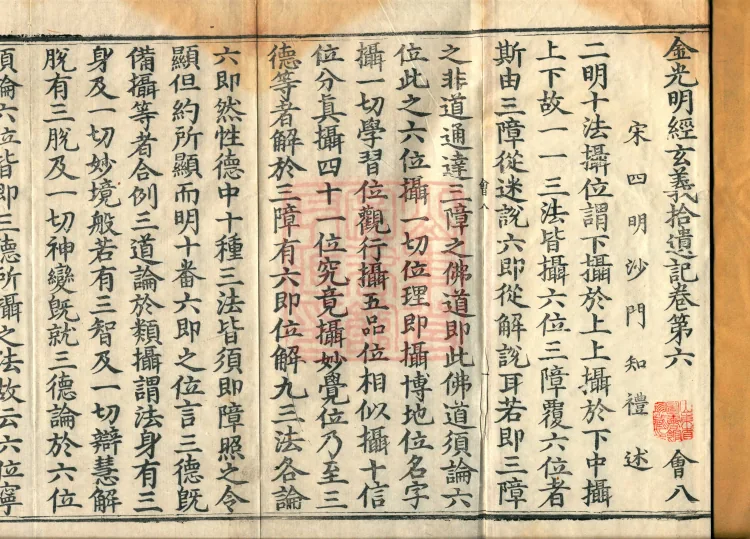 金光明經玄義拾遺記卷第六 會八
宋四明沙門知禮 述
二明十法攝位謂下攝於上上攝於下中攝
上下故一一三法皆攝六位三障覆六位者
斯由三障從迷說六即從解說耳若即三障
會八
之非道通達三障之佛道即此佛道須論六
位此之六位攝一切位理即攝博地位名字
攝一切學習位觀行攝五品位相似攝十信
位分真攝四十一位究竟攝妙覺位乃至三
德等者解於三障有六即位解九三法各論
六即然性德中十種三法皆須即障照之令
顯但約所顯而明十番六即之位言三德既
備攝等者合例三道論於類攝謂法身有三
身及一切妙境般若有三智及一切辯慧解
脫有三脫及一切神變既就三德論於六位
須論六位皆即三德所攝之法故云六位寧